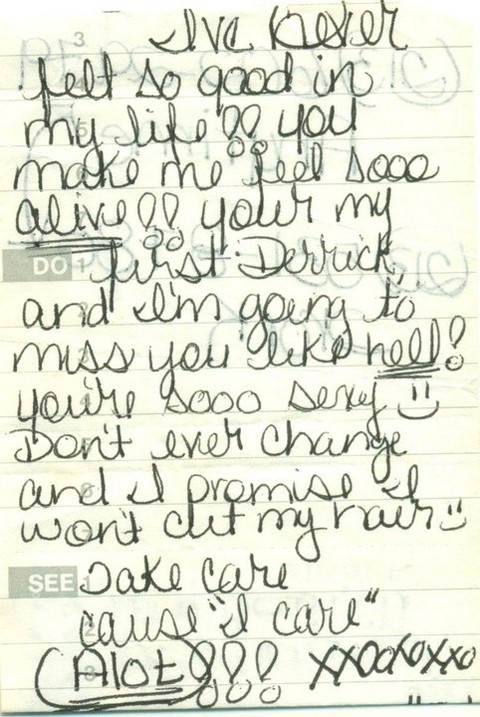 I've Never
felt so good in
my life!! you
make me feel sooo
alive!! your my
DO first Derrick,
and I'm going to
miss you like hell!
you're sooo sexy :)
Don't ever change
and I promise I
won't cut my hair :)
SEE Take care
cause "I care"
(Alot)!!! xxooxoxxo